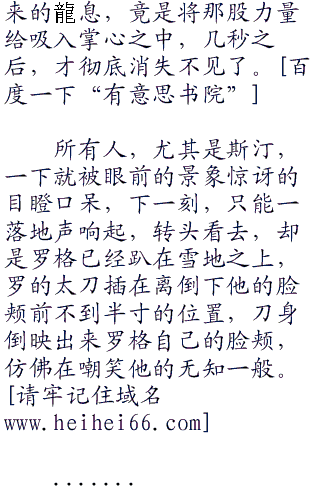 来的龍息，竟是将那股力量
给吸入掌心之中，几秒之
后，才彻底消失不见了。[百
度一下“有意思书院”]
所有人，尤其是斯汀，
一下就被眼前的景象惊讶的
目瞪口呆，下一刻，只能一
落地声响起，转头看去，却
是罗格已经趴在雪地之上，
罗的太刀插在离倒下他的脸
颊前不到半寸的位置，刀身
倒映出来罗格自己的脸颊，
仿佛在嘲笑他的无知一般。
[请牢记住域名
www.heihei66.com]
.......